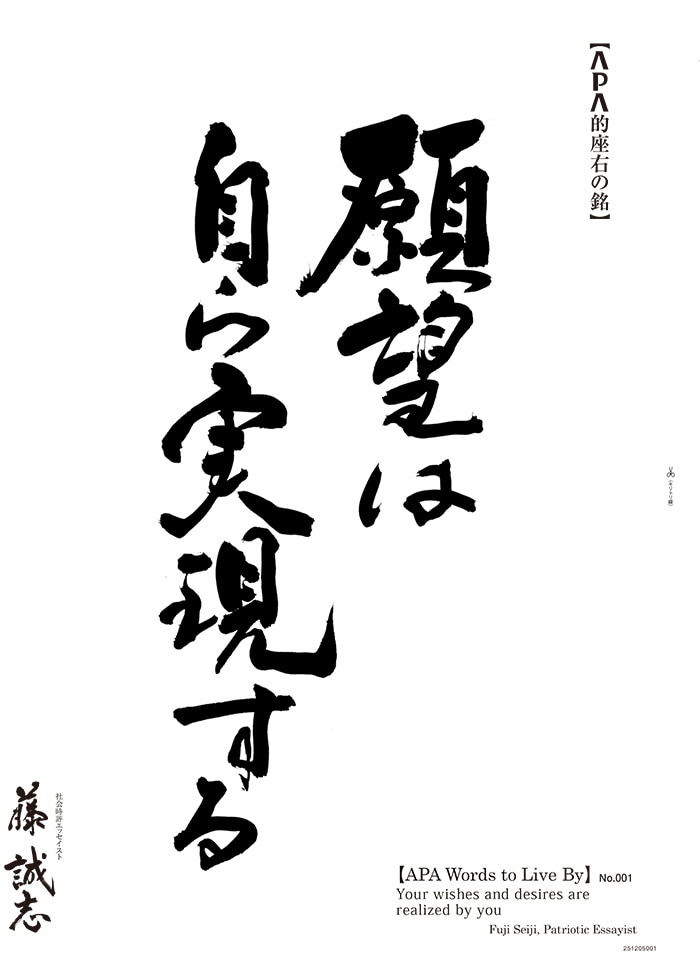 【APA的座右の銘】
願望は
自ら実現する
(キリトリ線)
社会時評エッセイスト
藤誠志
【APA Words to Live By】 No.001
Your wishes and desires are
realized by you
Fuji Seiji, Patriotic Essayist
251205001